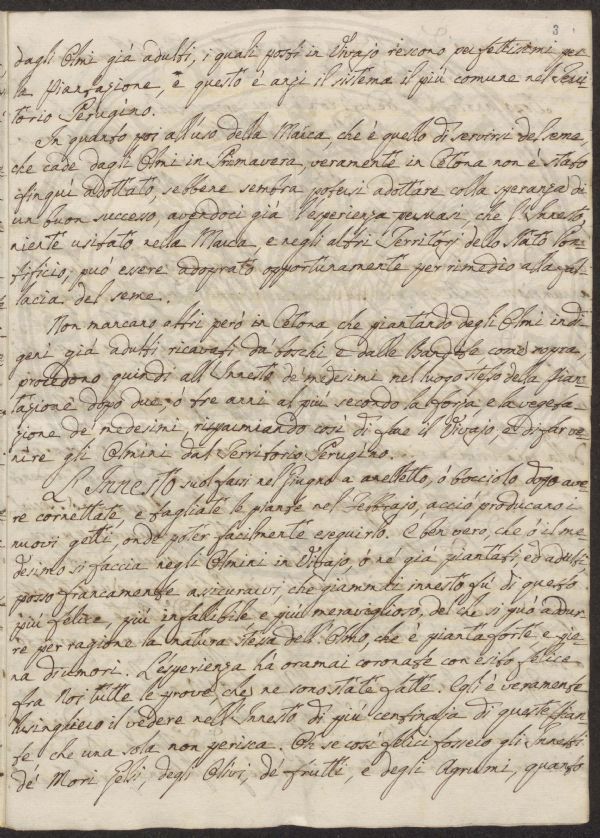 3
dagli Olmi già adulti, i quali posti in Vivajo riescono perfettissimi per
la piantazione, e questo è anzi il sistema il più comune nel Terri-
torio Perugino.
In quanto poi all'uso della Marca, che è quello di servirsi del seme,
che cade dagli Olmi in Primavera, veramente in Cetona non è stato
finqui adottato, sebbene sembra potersi adottare colla speranza di
un buon successo avendoci già l'esperienza persuasi che l'Innesto,
niente usitato nella Marca, e negli altri Territorj dello Stato Pon-
tificio, può essere adoprato opportunamente per rimedio alla fal-
lacia del seme.
Non mancano altri però in Cetona che piantando degli Olmi indi-
geni già adulti ricavati da' boschi e dalle Bandite come sopra,
procedono quindi all'Innesto de' medesimi nel luogo stesso della Pian-
tazione dopo due, o tre anni al più secondo la forza e la vegeta-
zione de' medesimi, risparmiando così di fare il Vivajo, e di far ve-
nire gli Olmini dal Territorio Perugino.
L'Innesto suol farsi nel Giugno a anelletto, ò bocciolo dopo ave-
re cornettate, e tagliate le piante nel Febbrajo, acciò producano i
nuovi getti onde poter facilmente eseguirlo. E ben vero, che ò il me-
desimo si faccia negli Olmini in Vivajo, ò né già piantati ed adulti
posso francamente assicurarvi che giammai innesto fù di questo
più felice, più infallibile e più meraviglioso, del che si può addur-
re per ragione la natura stessa dell'Olmo, che è pianta forte e pie-
na di umori. L'esperienza hà oramai coronate con esito felice
fra Noi tutte le prove che ne sono state fatte. Egli è veramente
lusinghiero il vedere nell'Innesto di più centinaia di queste Pian-
te che una sola non perisca. Oh se così felici fossero gli Innesti
de' Mori Gelsi, degli Olivi, de' frutti, e degli Agrumi, quanto